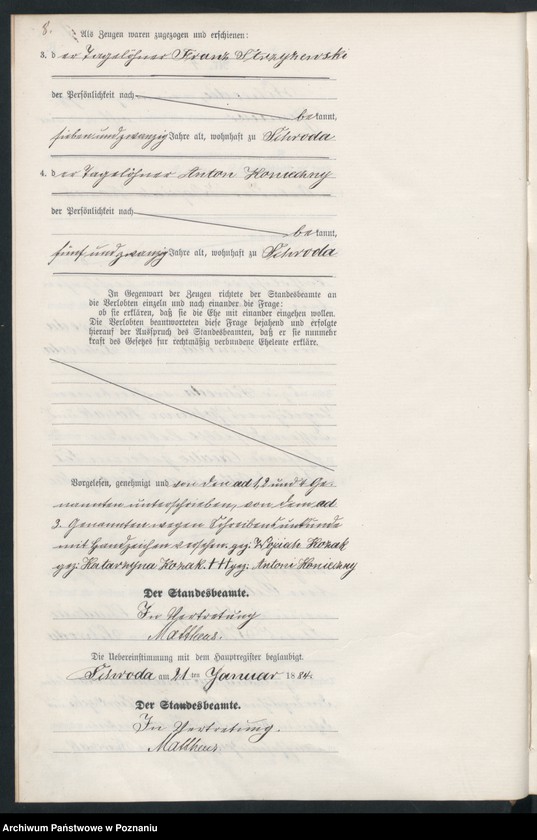 8.
Als Zeugen waren zugezogen und erschienen:
3. der Tagelöhner Franz
der Persönlichkeit nach
bekannt,
siebenundzwanzig Jahre alt, wohnhaft zu Schroda
4. der Tagelöhner Anton Konieczny
der Persönlichkeit nach
bekannt,
fünfundzwanzig Jahre alt, wohnhaft zu Schroda
In Gegenwart der Zeugen richtete der Standesbeamte an
die Verlobten einzeln und nach einander die Frage:
ob sie erklären, daß sie die Ehe mit einander eingehen wollen.
Die Verlobten beantworteten diese Frage bejahend und erfolgte
hierauf der Ausspruch des Standesbeamten, daß er sie nunmehr
kraft des Gesetzes für rechtmäßig verbundene Eheleute erkläre.
Vorgelesen, genehmigt und von den ad 1, 2 und 4 Ge-
nannten unterschrieben, von dem ad
3. Genannten wegen Schreibensunkunde
mit Handzeichen versehen. gez. Kozak
gez. Katarzyna Kozak. +++ gez. Antoni Konieczny
Der Standesbeamte.
In Vertretung
Mattheus.
Die Uebereinstimmung mit dem Hauptregister beglaubigt.
Schroda am 21 ten Januar 1884.
Der Standesbeamte.
In Vertretung.
Mattheus.
Archiwum Państwowe w Poznaniu